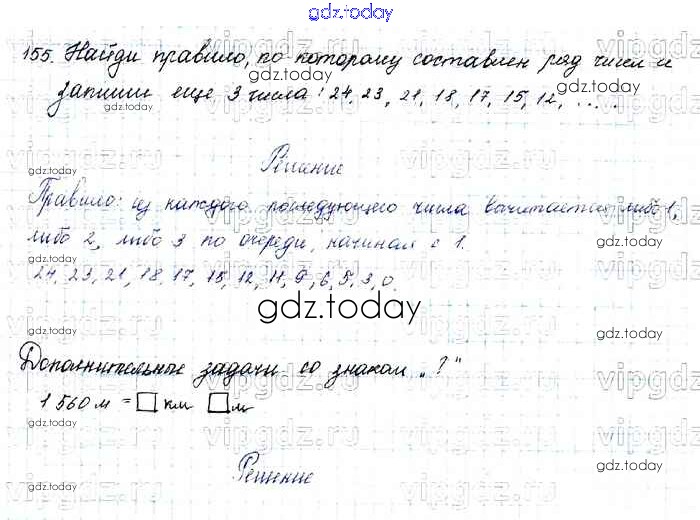 gdz.today
155. Найди правило, по которому составлен ряд чисел и
запиши еще 3 числа: 24, 23, 21, 18, 17, 15, 12, .....
gdz.today
Решение
Правило: из каждого последующего числа вычитается либо 1,
либо 2, либо 3 по очереди, начиная с 1.
24, 23, 21, 18, 17, 15, 12, 11, 9, 6, 5, 3, 0.
gdz.today
Дополнительные задачи со знаком "?"
1 560 м = □ км □ м
Решение
gdz.today